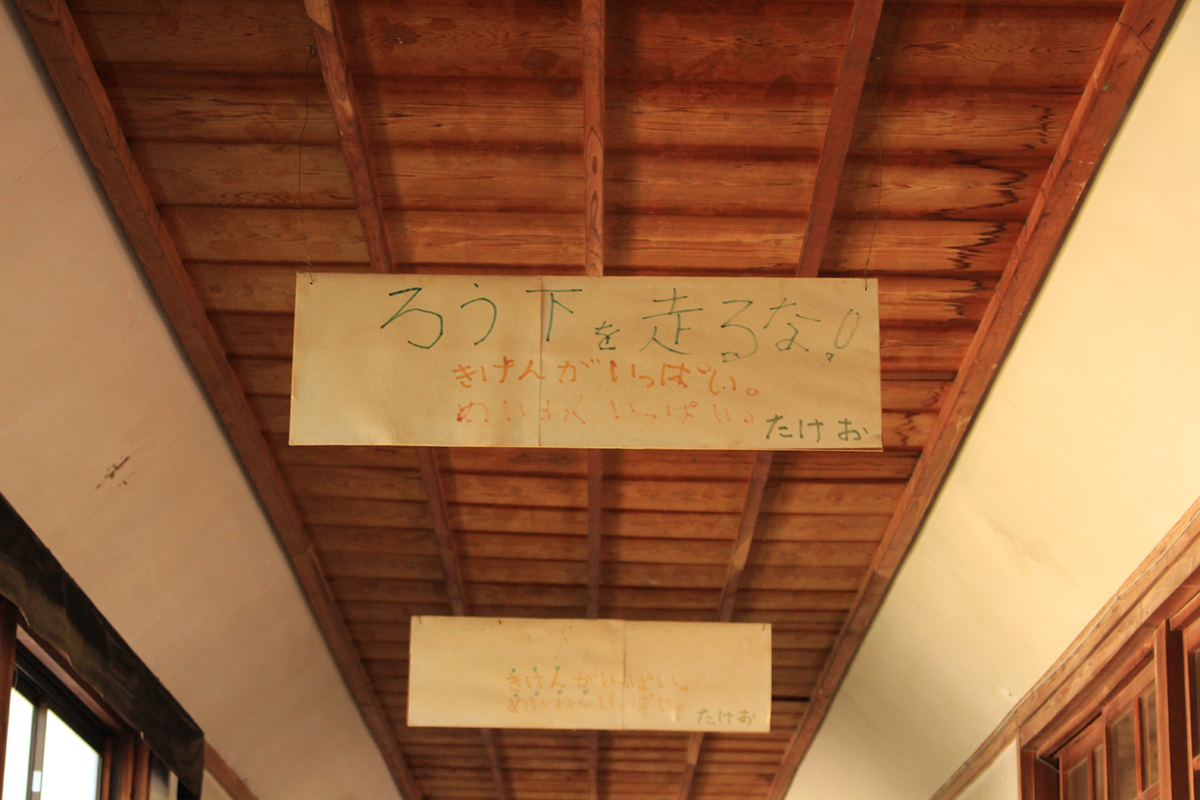 ろう下を走るな!
きけんがいっぱい。
めいわくいっぱい。
たけお
きけんがいっぱい。
めいわくいっぱい。
たけお